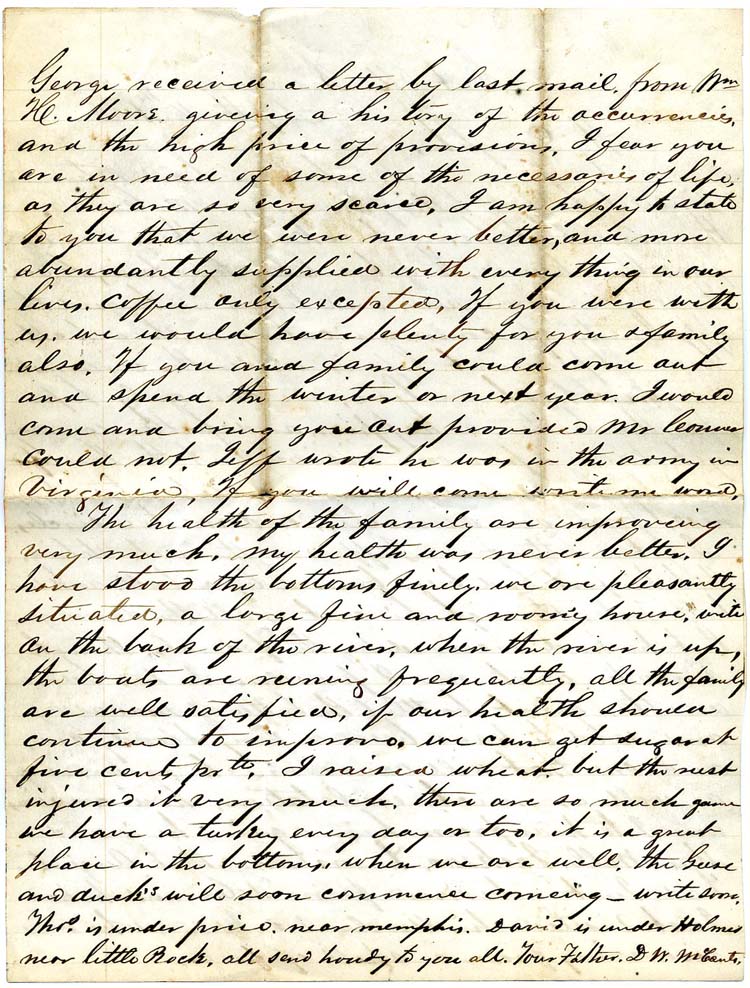 George received a letter by last mail, from Wm
H. Moore. giveing a history of the occurrencies,
and the high price of provisions, I fear you
are in need of some of the necessaries of life,
as they are so very scarce, I am happy to state
to you that we were never better, and more
abundantly supplied with every thing in our
lives. Coffee only excepted, If you were with
us. we would have plenty for you & family
also. If you and family could come out
and spend the winter or next year. I would
come and bring you out provided Mr
could not. Jeff wrote he was in the army in
Virginia, If you will come write me word,
The health of the family are improveing
very much. my health was never better. I
have stood the bottoms finely. we are pleasantly
situated, a large fine and roomy house, write
on the bank of the river, when the river is up,
the boats are runing frequently, all the family
are well satisfied, if our health should
continue to improve. we can get sugar at
five cents pr lb, I raised wheat. but the rust
injured it very much, there are so much game
we have a turkey every day or too, it is a great
place in the bottoms, when we are well, the Geese
and duck's will soon commence comeing – write soon,
Thos is under price. near memphis. David is under Holmes
near little Rock, all send howdy to you all. Your Father. D W.